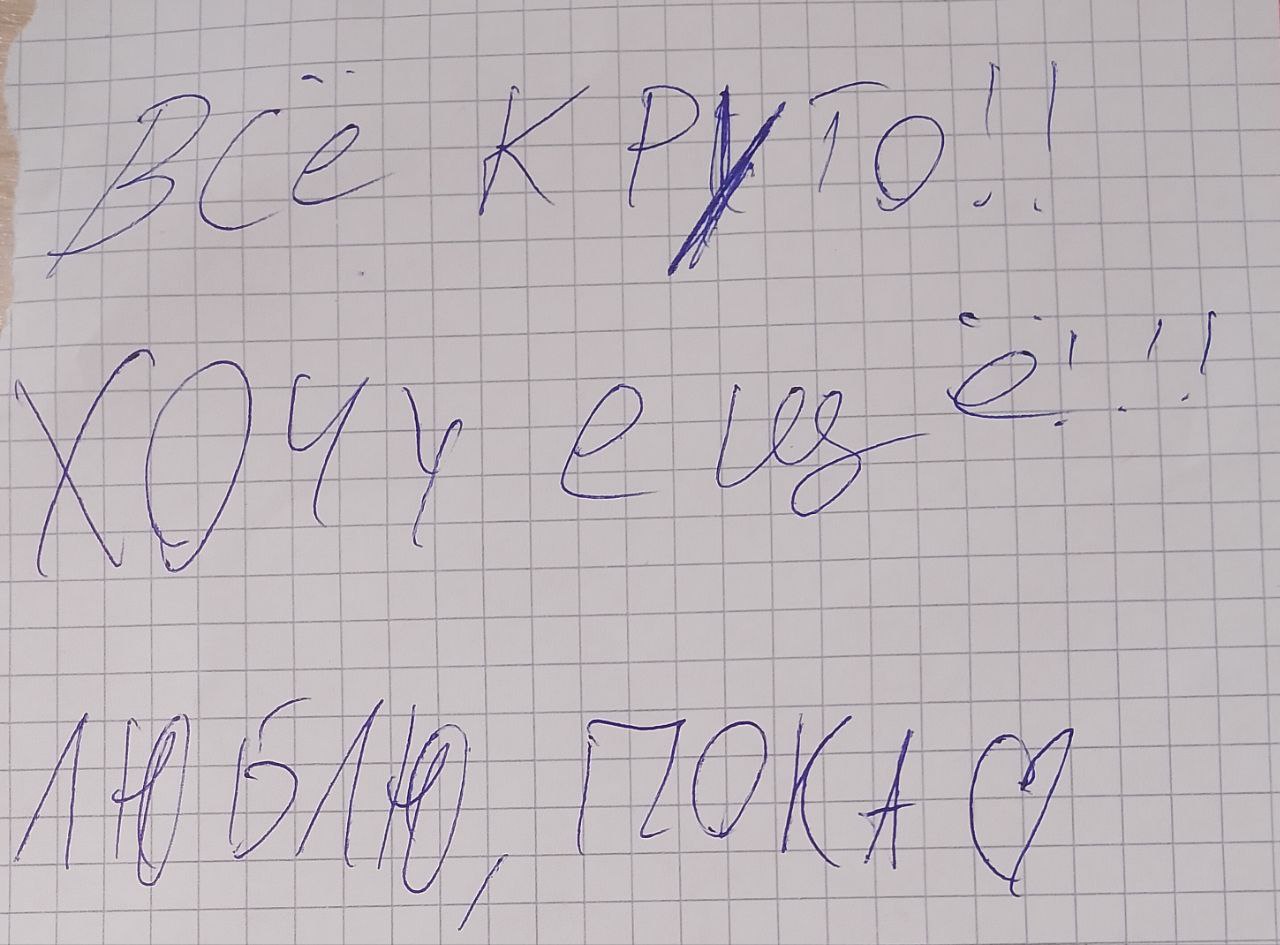 ВСё КРУТО!!
ХОЧУ ещё!!!
ЛЮБЛЮ, ПОКА ♡